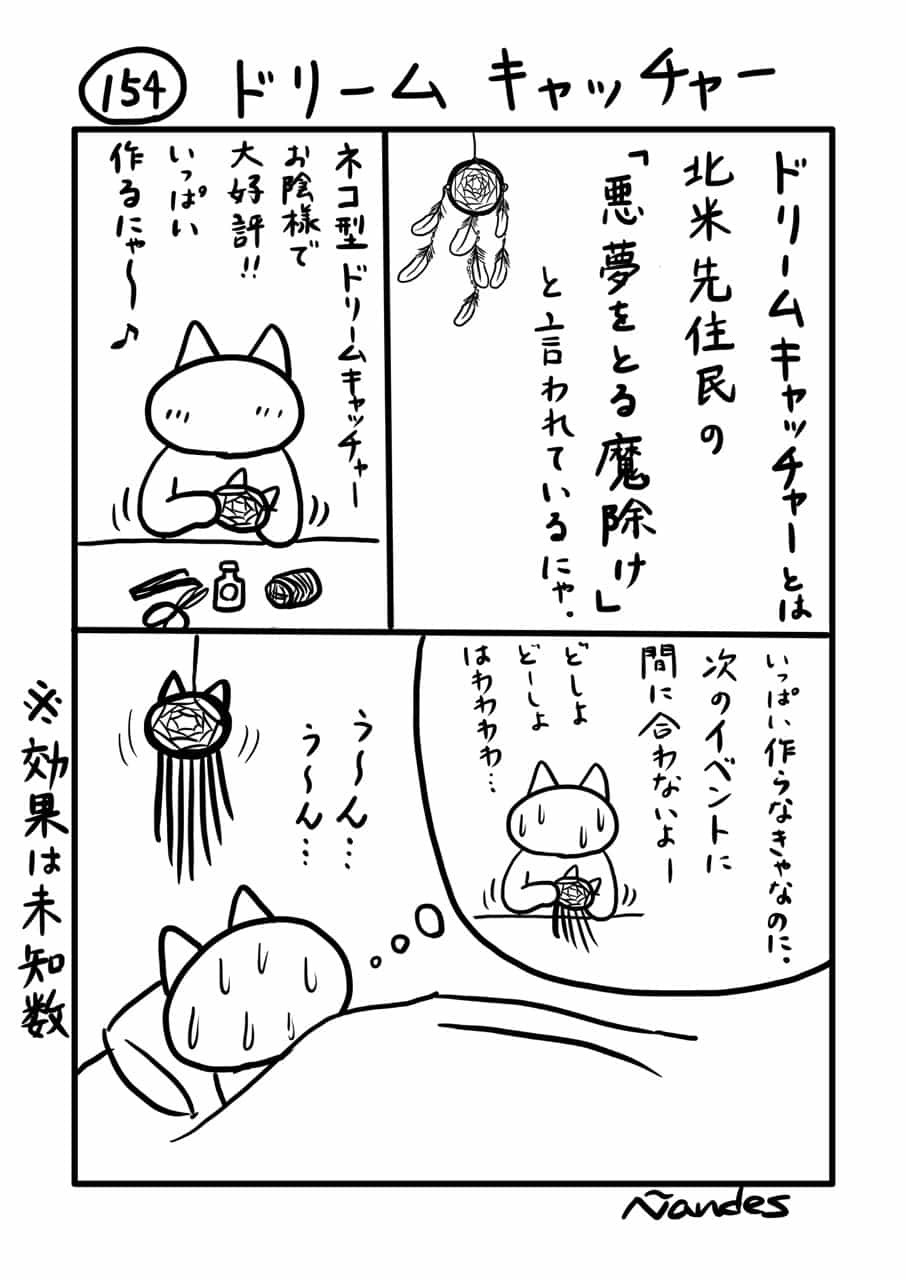 154
ドリーム キャッチャー
ドリームキャッチャーとは
北米先住民の
「悪夢をとる魔除け」
と言われているにゃ.
ネコ型ドリームキャッチャー
お陰様で
大好評!!
いっぱい
作るにゃ〜♪
いっぱい作らなきゃなのに.
次のイベントに
間に合わないよー
どしよ
どーしよ
はわわわわ…
う〜ん…
う〜ん…
※効果は未知数
Ñandes